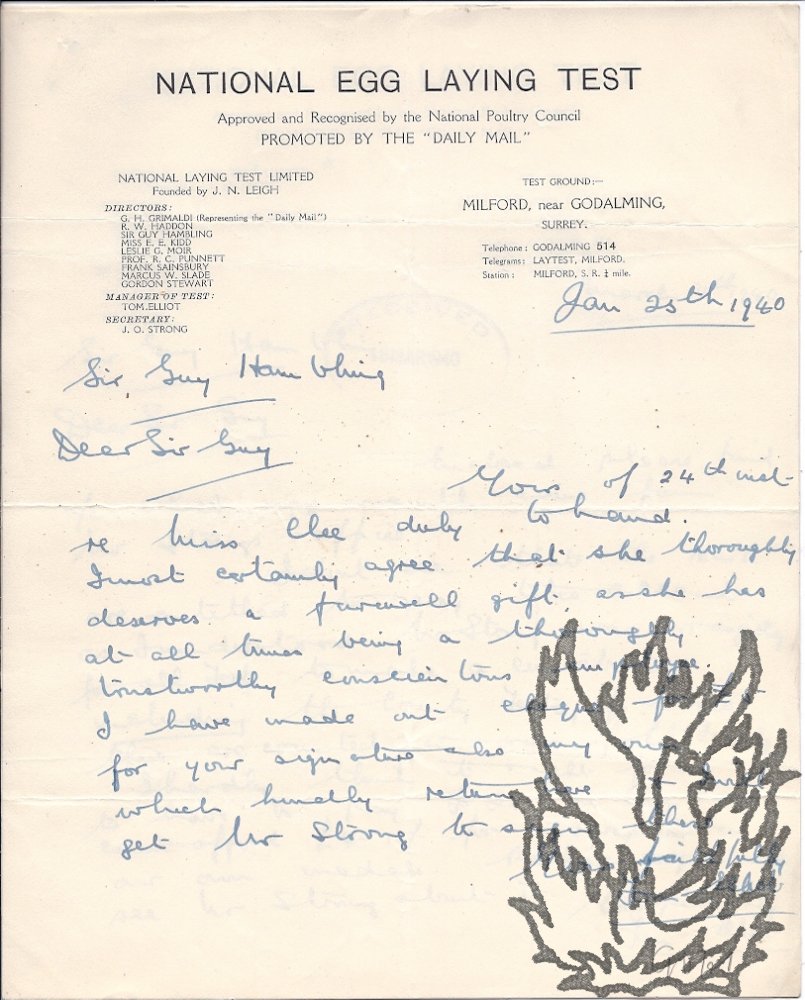 NATIONAL EGG LAYING TEST
Approved and Recognised by the National Poultry Council
PROMOTED BY THE "DAILY MAIL"
NATIONAL LAYING TEST LIMITED
Founded by J. N. LEIGH
DIRECTORS:
G. H. GRIMALDI (Representing the "Daily Mail")
R. W. HADDON
SIR GUY HAMBLING
MISS E. E. KIDD
LESLIE G. MOIR
PROF. R. C. PUNNETT
FRANK SAINSBURY
MARCUS W. SLADE
GORDON STEWART
MANAGER OF TEST:
TOM. ELLIOT
SECRETARY:
J. O. STRONG
TEST GROUND:—
MILFORD, near GODALMING,
SURREY.
Telephone : GODALMING 514
Telegrams : LAYTEST, MILFORD.
Station : MILFORD, S. R. ½ mile.
Jan 25th 1940
Sir Guy Hambling
Dear Sir Guy
Yours of 24th inst
re Miss Clee duly to hand.
I most certainly agree that she thoroughly
deserves a farewell gift as she has
at all times being a thoroughly
trustworthy conscientous employee.
I have made out cheque for
for your signature also my
which kindly return &
get Mr Strong to sign these.
Yours faithfully